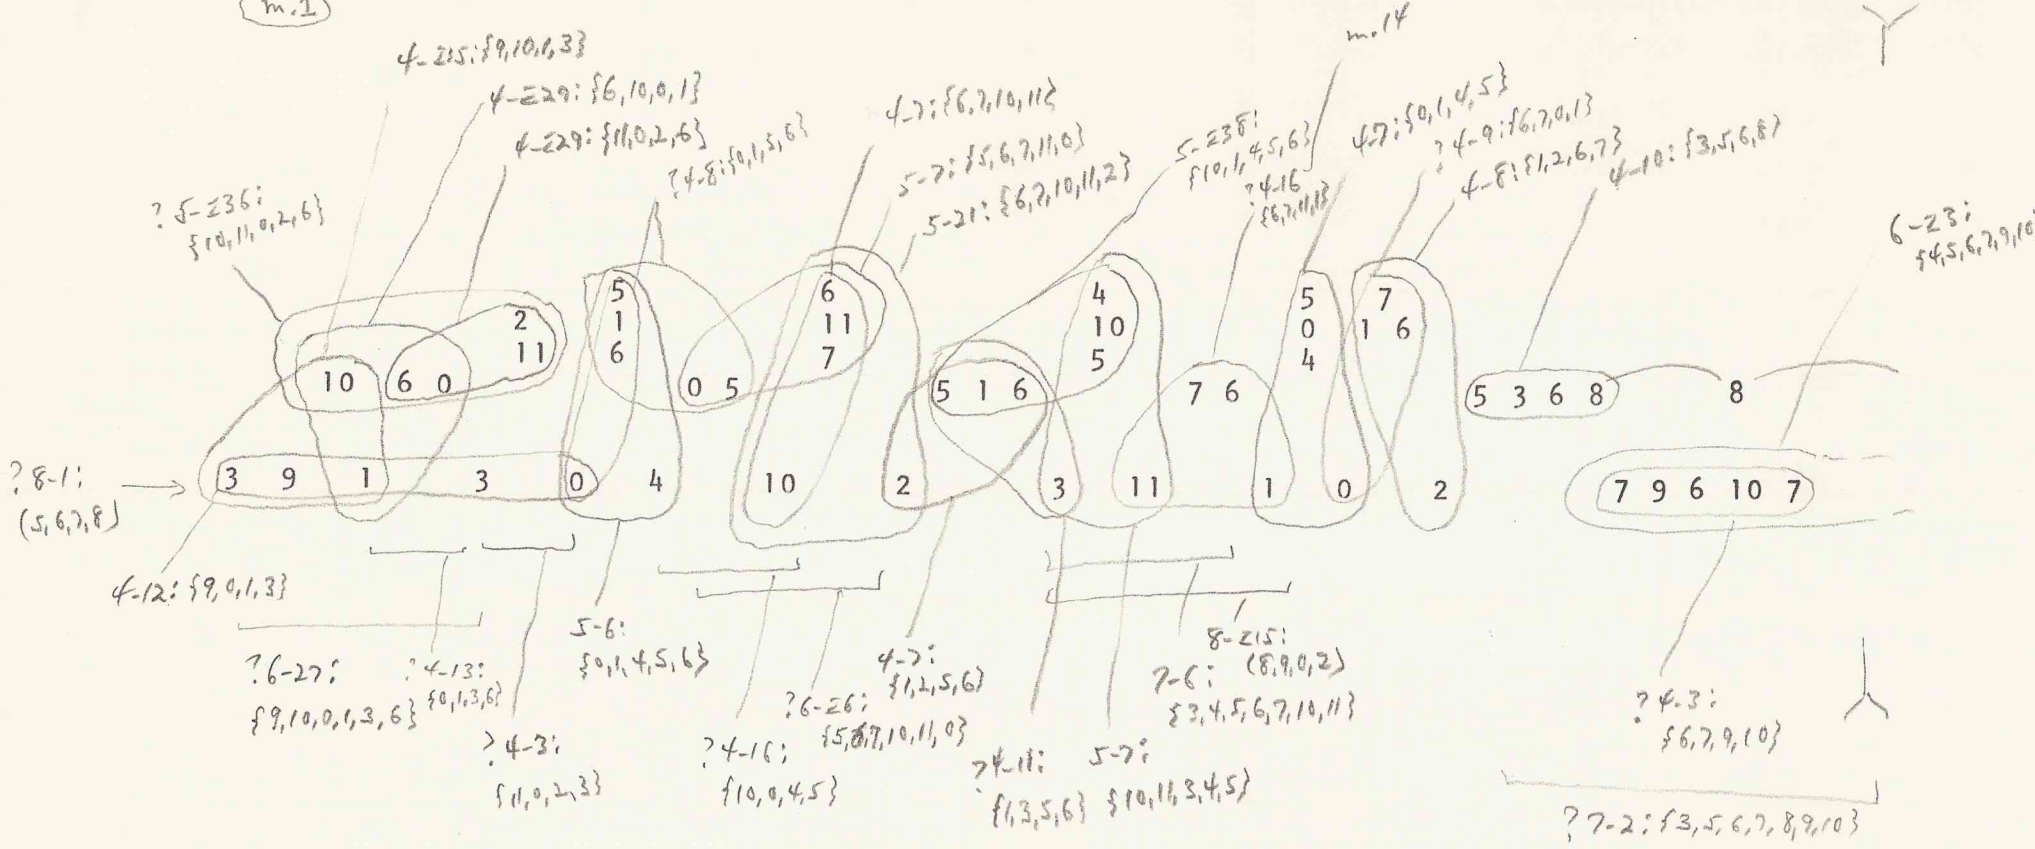 m.1
4-Z15:{9,10,1,3}
4-Z29:{6,10,0,1}
4-Z29:{11,0,2,6}
?4-8:{0,1,5,6}
4-7:{6,7,10,11}
5-7:{5,6,7,11,0}
5-21:{6,7,10,11,2}
5-Z38:
{10,1,4,5,6}
?4-16
{6,7,11,1}
m.14
4-7:{0,1,4,5}
?4-9:{6,7,0,1}
4-8:{1,2,6,7}
4-10:{3,5,6,8}
6-Z3:
{4,5,6,7,9,10
?5-Z36:
{10,11,0,2,6}
2
11
10 6 0
5
1
6
0 5
6
11
7
5 1 6
4
10
5
7 6
5
0
4
7
1 6
5 3 6 8
8
?8-1:
(5,6,7,8)
3 9 1 3 0 4 10 2 3 11 1 0 2
7 9 6 10 7
4-12:{9,0,1,3}
?6-27:
{9,10,0,1,3,6}
?4-13:
{0,1,3,6}
?4-3:
{11,0,2,3}
5-6:
{0,1,4,5,6}
?4-16:
{10,0,4,5}
?6-Z6:
{5,6,7,10,11,0}
4-7:
{1,2,5,6}
?4-11:
{1,3,5,6}
5-7:
{10,11,3,4,5}
7-6:
{3,4,5,6,7,10,11}
8-Z15:
(8,9,0,2)
?4-3:
{6,7,9,10}
?7-2:{3,5,6,7,8,9,10}